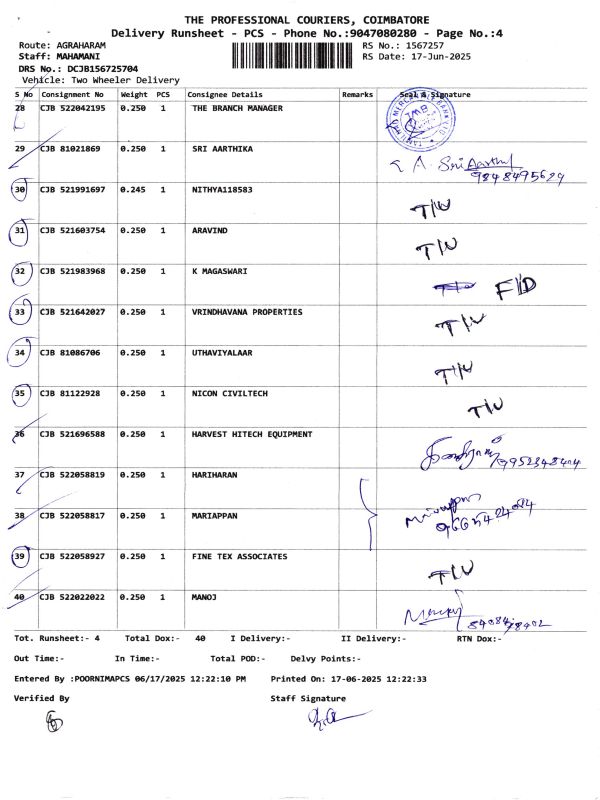 THE PROFESSIONAL COURIERS, COIMBATORE
Delivery Runsheet - PCS - Phone No.:9047080280 - Page No.:4
Route: AGRAHARAM RS No.: 1567257
Staff: MAHAMANI RS Date: 17-Jun-2025
DRS No.: DCJB156725704
Vehicle: Two Wheeler Delivery
S No Consignment No Weight PCS Consignee Details Remarks Seal & Signature
28 CJB 522042195 0.250 1 THE BRANCH MANAGER TMB
29 CJB 81021869 0.250 1 SRI AARTHIKA A. Sri Aarthi
9248495629
30 CJB 521991697 0.245 1 NITHYA118583 T/N
31 CJB 521603754 0.250 1 ARAVIND T/N
32 CJB 521983968 0.250 1 K MAGASWARI F/D
33 CJB 521642027 0.250 1 VRINDHAVANA PROPERTIES T/N
34 CJB 81086706 0.250 1 UTHAVIYALAAR T/N
35 CJB 81122928 0.250 1 NICON CIVILTECH T/N
36 CJB 521696588 0.250 1 HARVEST HITECH EQUIPMENT
37 CJB 522058819 0.250 1 HARIHARAN
38 CJB 522058817 0.250 1 MARIAPPAN
39 CJB 522058927 0.250 1 FINE TEX ASSOCIATES T/N
40 CJB 522022022 0.250 1 MANOJ
Tot. Runsheet:- 4 Total Dox:- 40 I Delivery:- II Delivery:- RTN Dox:-
Out Time:- In Time:- Total POD:- Delvy Points:-
Entered By :POORNIMAPCS 06/17/2025 12:22:10 PM Printed On: 17-06-2025 12:22:33
Verified By Staff Signature